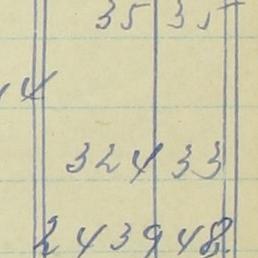 35 35
14
324 33
2439 48